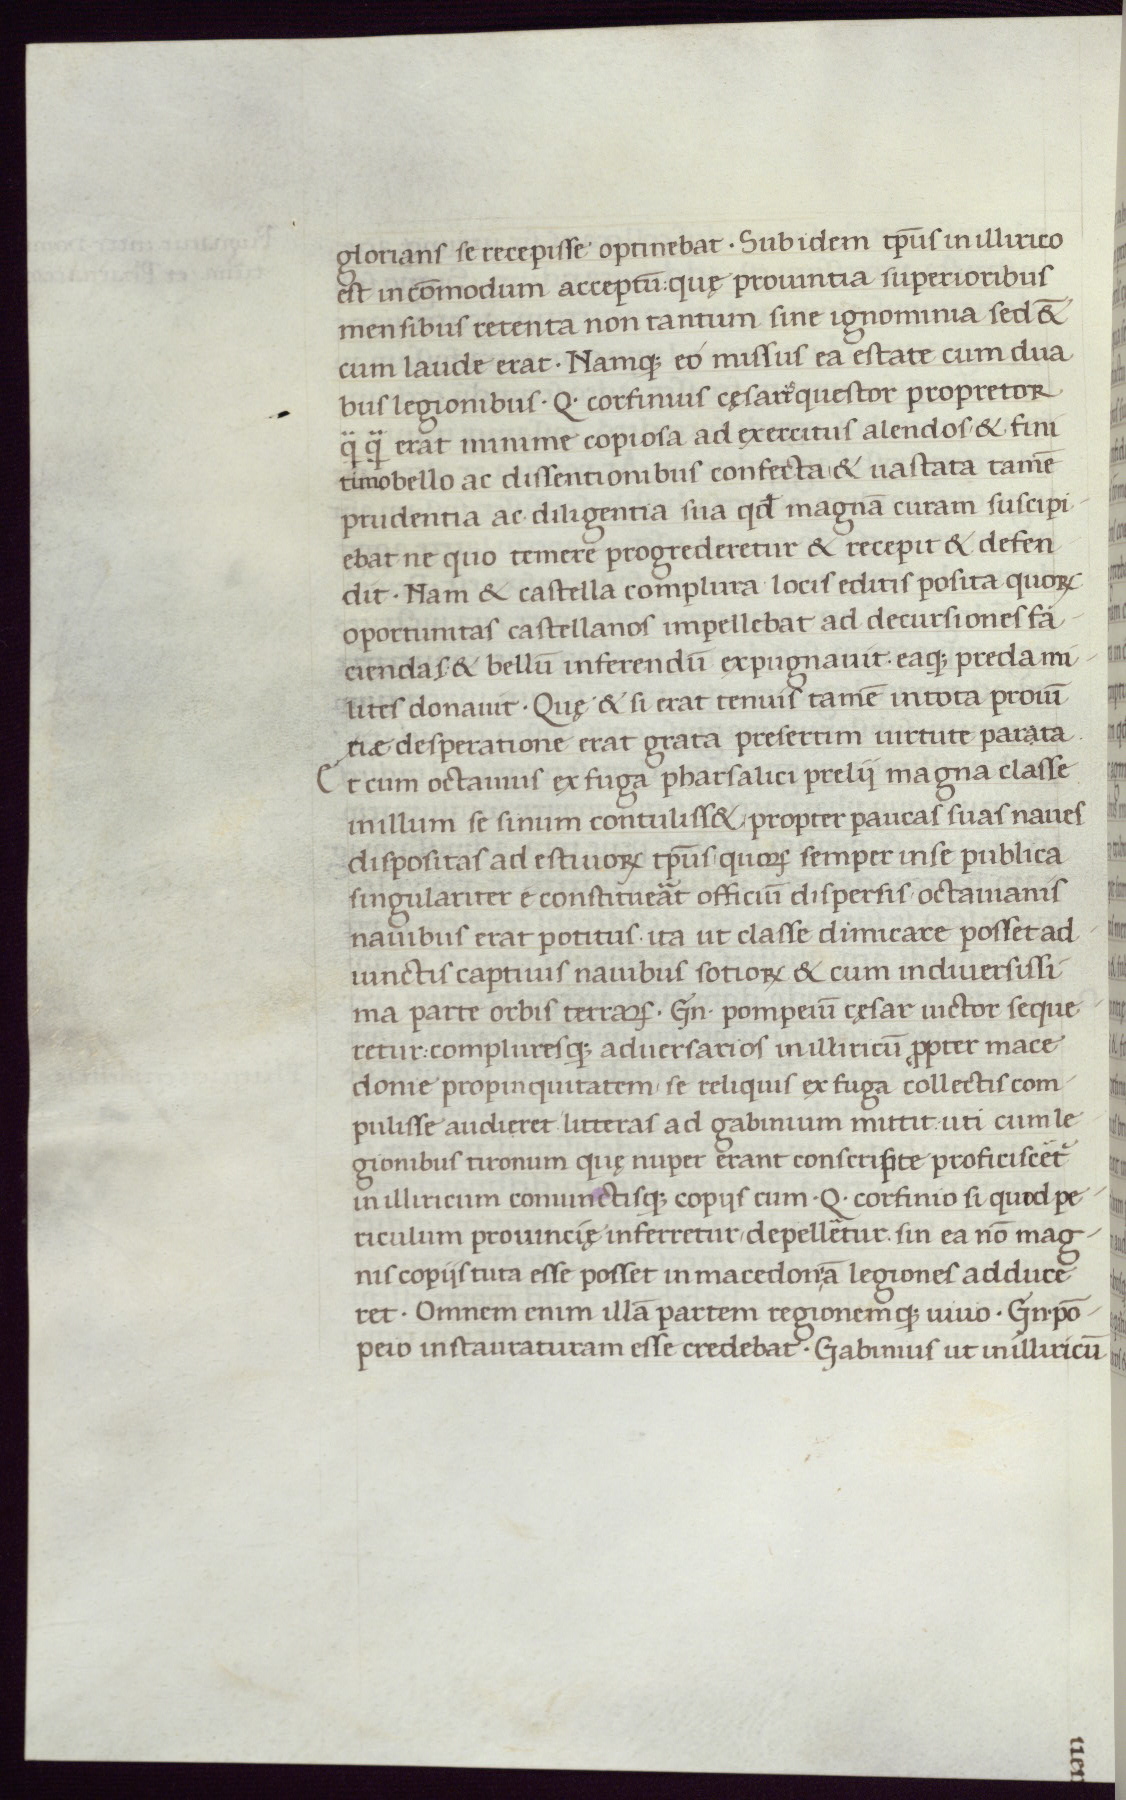 glorians se recepisse optinebat · Sub idem tp̄us in illirico
est incōmodum acceptū: quę prouintia superioribus
mensibus retenta non tantum sine ignominia sed &
cum laude erat · Namq; eo missus ea estate cum dua
bus legionibus · Q · corfinius cęsaris questor propretor
q̈ q̈ erat minime copiosa ad exercitus alendos & fini
timo bello ac dissentionibus confecta & uastata tamē
prudentia ac diligentia sua qđ magnā curam suscipi-
ebat ne quo temere progrederetur & recepit & defen
dit · Nam & castella complura locis editis posita quoꝝ
oportunitas castellanos impellebat ad decursiones fa-
ciendas & bellū inferendū expugnauit · eaq; preda mi-
lites donauit · Quę & si erat tenuis tamē in tota prouī
tiæ desperatione erat grata presertim uirtute parata
Et cum octauius ex fuga pharsalici prelij magna classe
in illum se sinum contuliss& propter paucas suas naues
dispositas ad estiuoꝝ tp̄us quoꝝ semper in se publica
singulariter e constitueāt officiū dispersis octauianis
nauibus erat potitus · ita ut classe dimicare posset ad
iunctis captiuis nauibus sotioꝝ & cum in diuersissi-
ma parte orbis terraꝝ · Gn · pompeiū cęsar uictor seque-
retur: compluresq; aduersarios in illiricū ꝓpter mace-
donie propinquitatem se reliquis ex fuga collectis com-
pulisse audieret litteras ad gabinium mittit uti cum le-
gionibus tironum quę nuper erant conscripte proficiscēt᷑
in illiricum comunctisq; copijs cum · Q · corfinio si quod pe-
riculum prouincię inferretur depellētur · sin ea nō mag-
nis copijs tuta esse posset in macedoniā legiones adduce-
ret · Omnem enim illā partem regionemq; uiuo · Gn · pō-
peio instauraturam esse credebat · Gabinius ut in illiricū
uen